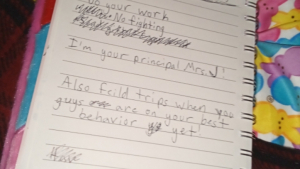 do your work
No fighting
I'm your principal Mrs. J!
Also feild trips when you
guys are on your best
behavior yet!